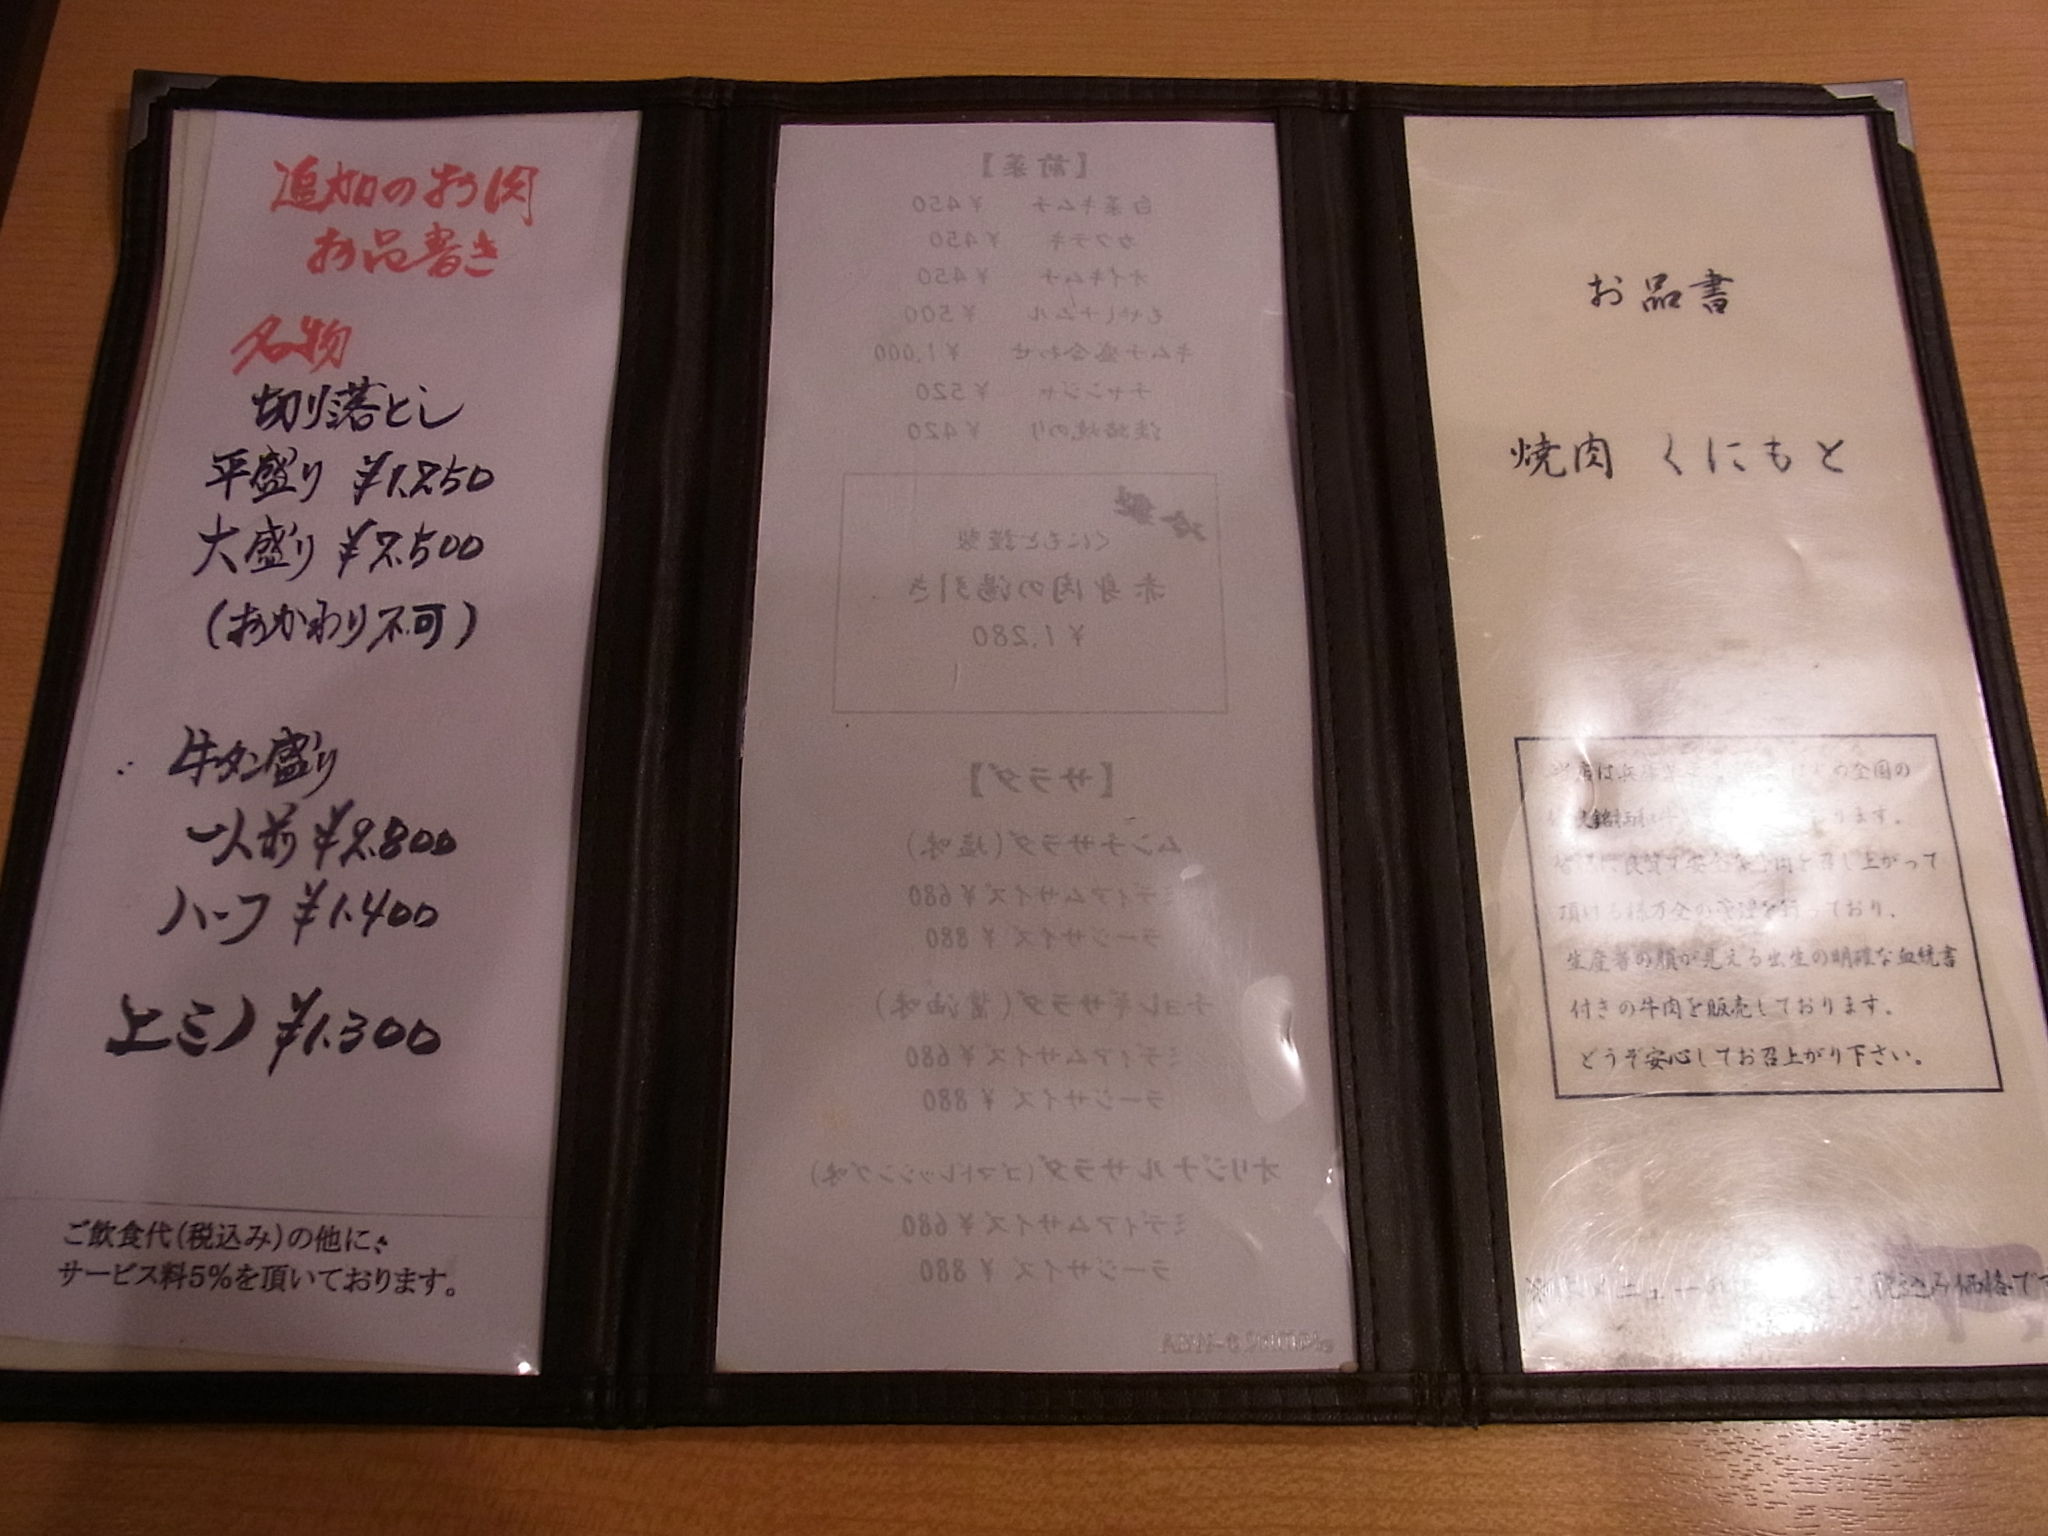 追加のお肉
お品書き
名物
切り落とし
平盛り ¥1.250
大盛り ¥2.500
(おかわり不可)
牛タン盛り
一人前 ¥2.800
ハーフ ¥1.400
上ミノ ¥1.300
ご飲食代(税込み)の他に、
サービス料5%を頂いております。
【前菜】
白菜キムチ ¥450
カクテキ ¥450
オイキムチ ¥450
もやしナムル ¥500
キムチ盛合わせ ¥1,000
チャンジャ ¥520
焼のり ¥420
冷製
くにもと謹製
赤身肉の湯引き
¥1,280
【サラダ】
ムンチサラダ(塩味)
ミディアムサイズ ¥680
ラージサイズ ¥880
チョレギサラダ(醤油味)
ミディアムサイズ ¥680
ラージサイズ ¥880
オリジナルサラダ(ゴマドレッシング味)
ミディアムサイズ ¥680
ラージサイズ ¥880
お品書
焼肉 くにもと
当店は の全国の
ります。
召し上がって
頂ける様万全の管理を行っており、
生産者の顔が見える出生の明確な血統書
付きの牛肉を販売しております。
どうぞ安心してお召上がり下さい。
メニュー 税込み価格です